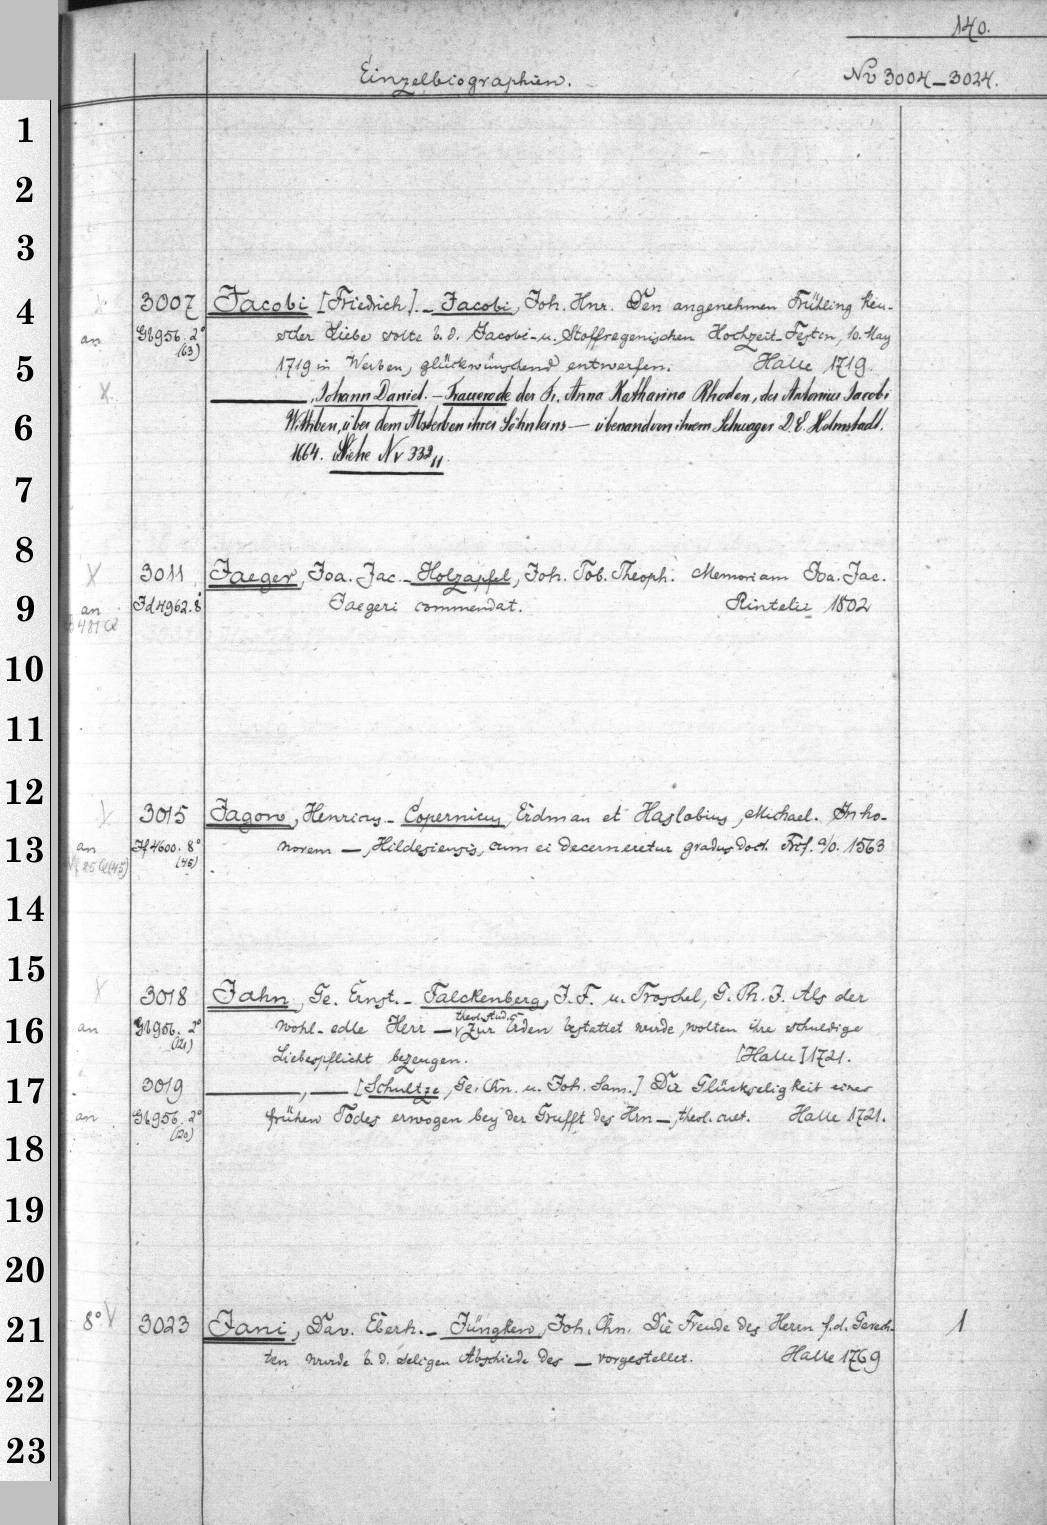 140.
Einzelbiographien. No 3004–3024.
1
2
3
4
5
6
7
8
9
10
11
12
13
14
15
16
17
18
19
20
21
22
23
3007 Jacobi [Friedrich]. – Jacobi, Joh. Hnr. Den angenehmen Frühling keu-
an Gb956. 2° scher Liebe wolte b. d. Jacobi- u. Stoffregenischen Hochzeit-Festin, 10. May
(63) 1719 in Werben, glückwünschend entwerfen. Halle 1719.
X ——, Johann Daniel. – Trauerode der Fr. Anna Katharina Rhoden, des Antonius Jacobi
Wittben, über dem Absterben ihres Söhnleins — übersandt von ihrem Schwager D. E. Helmstadt.
1664. Siehe Nr 332
X 3011 Jaeger, Joa. Jac. – Holzapfel, Joh. Tob. Theoph. Memoriam Joa. Jac.
an Id4962. 8° Jaegeri commendat. Rintelii 1802
3015 Jagow, Henricus – Copernicus, Erdman et Haslobius, Michael. In ho-
an If4600. 8° norem —, Hildesiensis, cum ei decerneretur gradus doct. Frf. a/O. 1563
(45)
X 3018 Jahn, Ge. Ernst. – Falckenberg, J. F. u. Troschel, G. Ph. J. Als der
theol. stud.
an Gb956. 2° wohl-edle Herr — zur Erden bestattet wurde, wolten ihre schuldige
(121) Liebespflicht bezeugen. [Halle] 1721.
3019 ——, — [Schultze, Ge. Chn. u. Joh. Sam.] Die Glückseligkeit eines
an Gb956. 2° frühen Todes erwogen bey der Grufft des Hrn —, theol. cult. Halle 1721.
(120)
8° 3023 Jani, Dav. Eberh. – Jüngken, Joh. Chn. Die Freude des Herrn f. d. Gerech- 1
ten wurde b. d. seligen Abschiede des — vorgestellet. Halle 1769